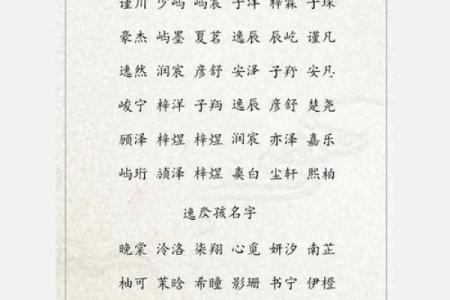 谨川 少屿 屿宸 子洋 梓霖 子琛
豪杰 屿墨 夏茗 逸辰 辰屹 谨凡
逸然 润宸 彦舒 安泽 子羿 安凡
峻宁 梓洋 子珣 逸辰 彦舒 楚尧
顾泽 梓煜 梓煜 润宸 亦泽 嘉乐
屿珩 祯泽 梓煜 奕白 尘轩 熙柏
逸 孩名字
晚棠 泠洛 柒翔 心觅 妍汐 南芷
柚可 茉晗 希瞳 影珊 书宁 伊橙